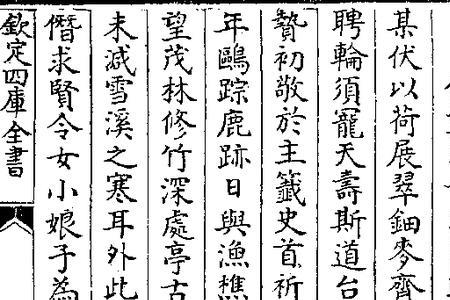 某伏以荷展翠鈿麥齊
聘輪須寵天壽斯道台
贄初敬於主籤史首祈
年鷗踪鹿跡日與漁樵
望茂林修竹深處亭古
未減雪溪之寒耳外此
僭求賢令女小娘子為
欽定四庫全書